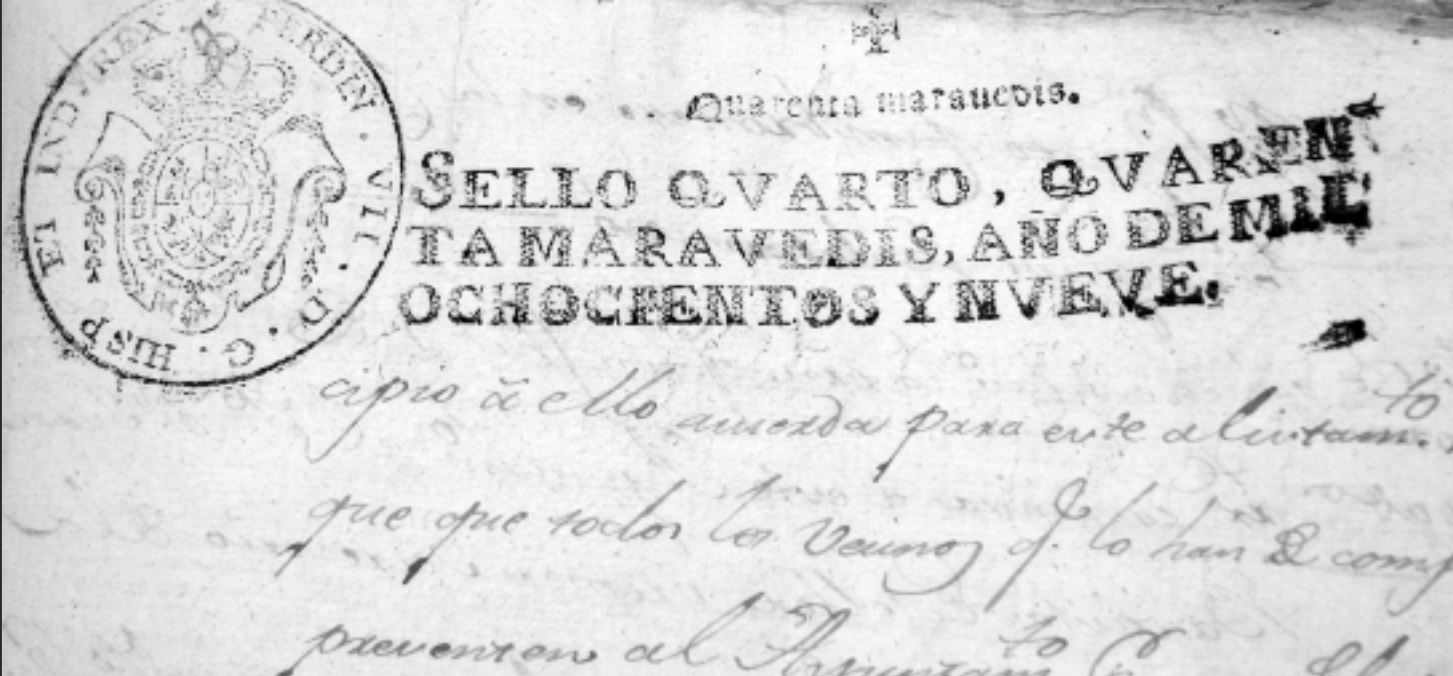 FERDIN. VII. D. G. HISP ET IND. REX
Quarenta marauedis.
SELLO QVARTO, QVAREN
TA MARAVEDIS, AÑO DE MIL
OCHOCIENTOS Y NVEVE.
cipio á ello acuerda para este alistam.to
que que todos los Vecinos q.e lo han de comp
presenten al Ayuntam.to